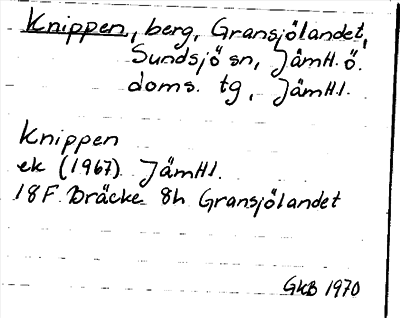 Knippen, berg, Gransjölandet,
Sundsjö sn, Jämtl. ö.
doms. tg, Jämtl.
Knippen
ek (1967) Jämtl.
18F Bräcke 8h Gransjölandet
GKB 1970